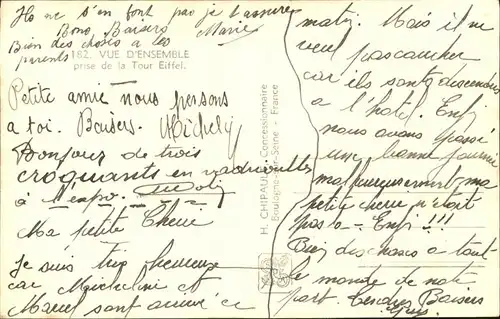 Ils ne s'en font pas je t'assure
Bons Baisers Marie
Bien des choses a tes
parents
182. VUE D'ENSEMBLE
prise de la Tour Eiffel.
Petite amie nous pensons
a toi. Baisers. Michely
Bonjour de trois
croquants en vadrouilles
à l'expo.
Ma petite Cherie
Je suis très heureuse
car Micheline et
Marcel sont arrivé ce
H. CHIPAULT, Concessionnaire
Boulogne-sur-Seine - France
matin. Mais il ne
veul pas coucher
car ils sont descendus
a l'hotel. Enfi
nous avons passé
une bonne journée
malheureusement ma
petite cherie n'était
pas a - Enfi !!!
Bien des choses a tout
le monde de notre
part. Tendres Baisers